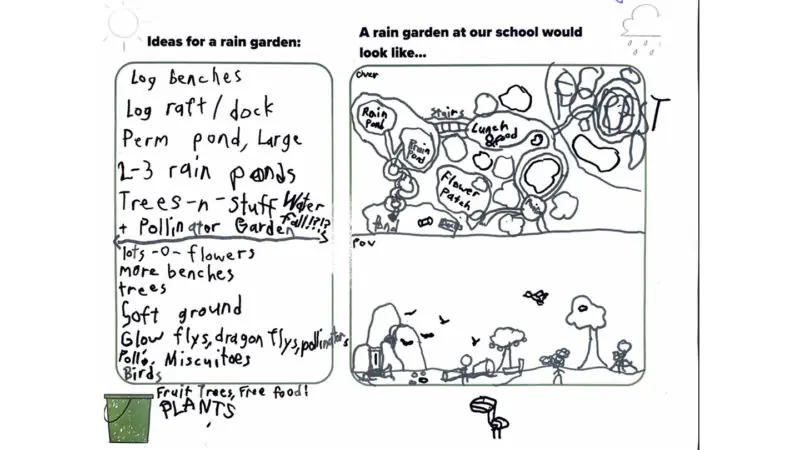 Ideas for a rain garden:
Log benches
Log raft / dock
Perm pond, Large
2-3 rain ponds
Trees-n-stuff Water
fall!?!?
+ Pollinator Garden
lots -o- flowers
more benches
trees
Soft ground
Glow flys, dragon flys, pollinators
Polli. Miscuitoes
Birds
Fruit Trees, Free food!
PLANTS
A rain garden at our school would
look like...
Over
Rain
Pond
Stairs
Lunch
& food
Rain
Pond
Flower
Patch
T
POV